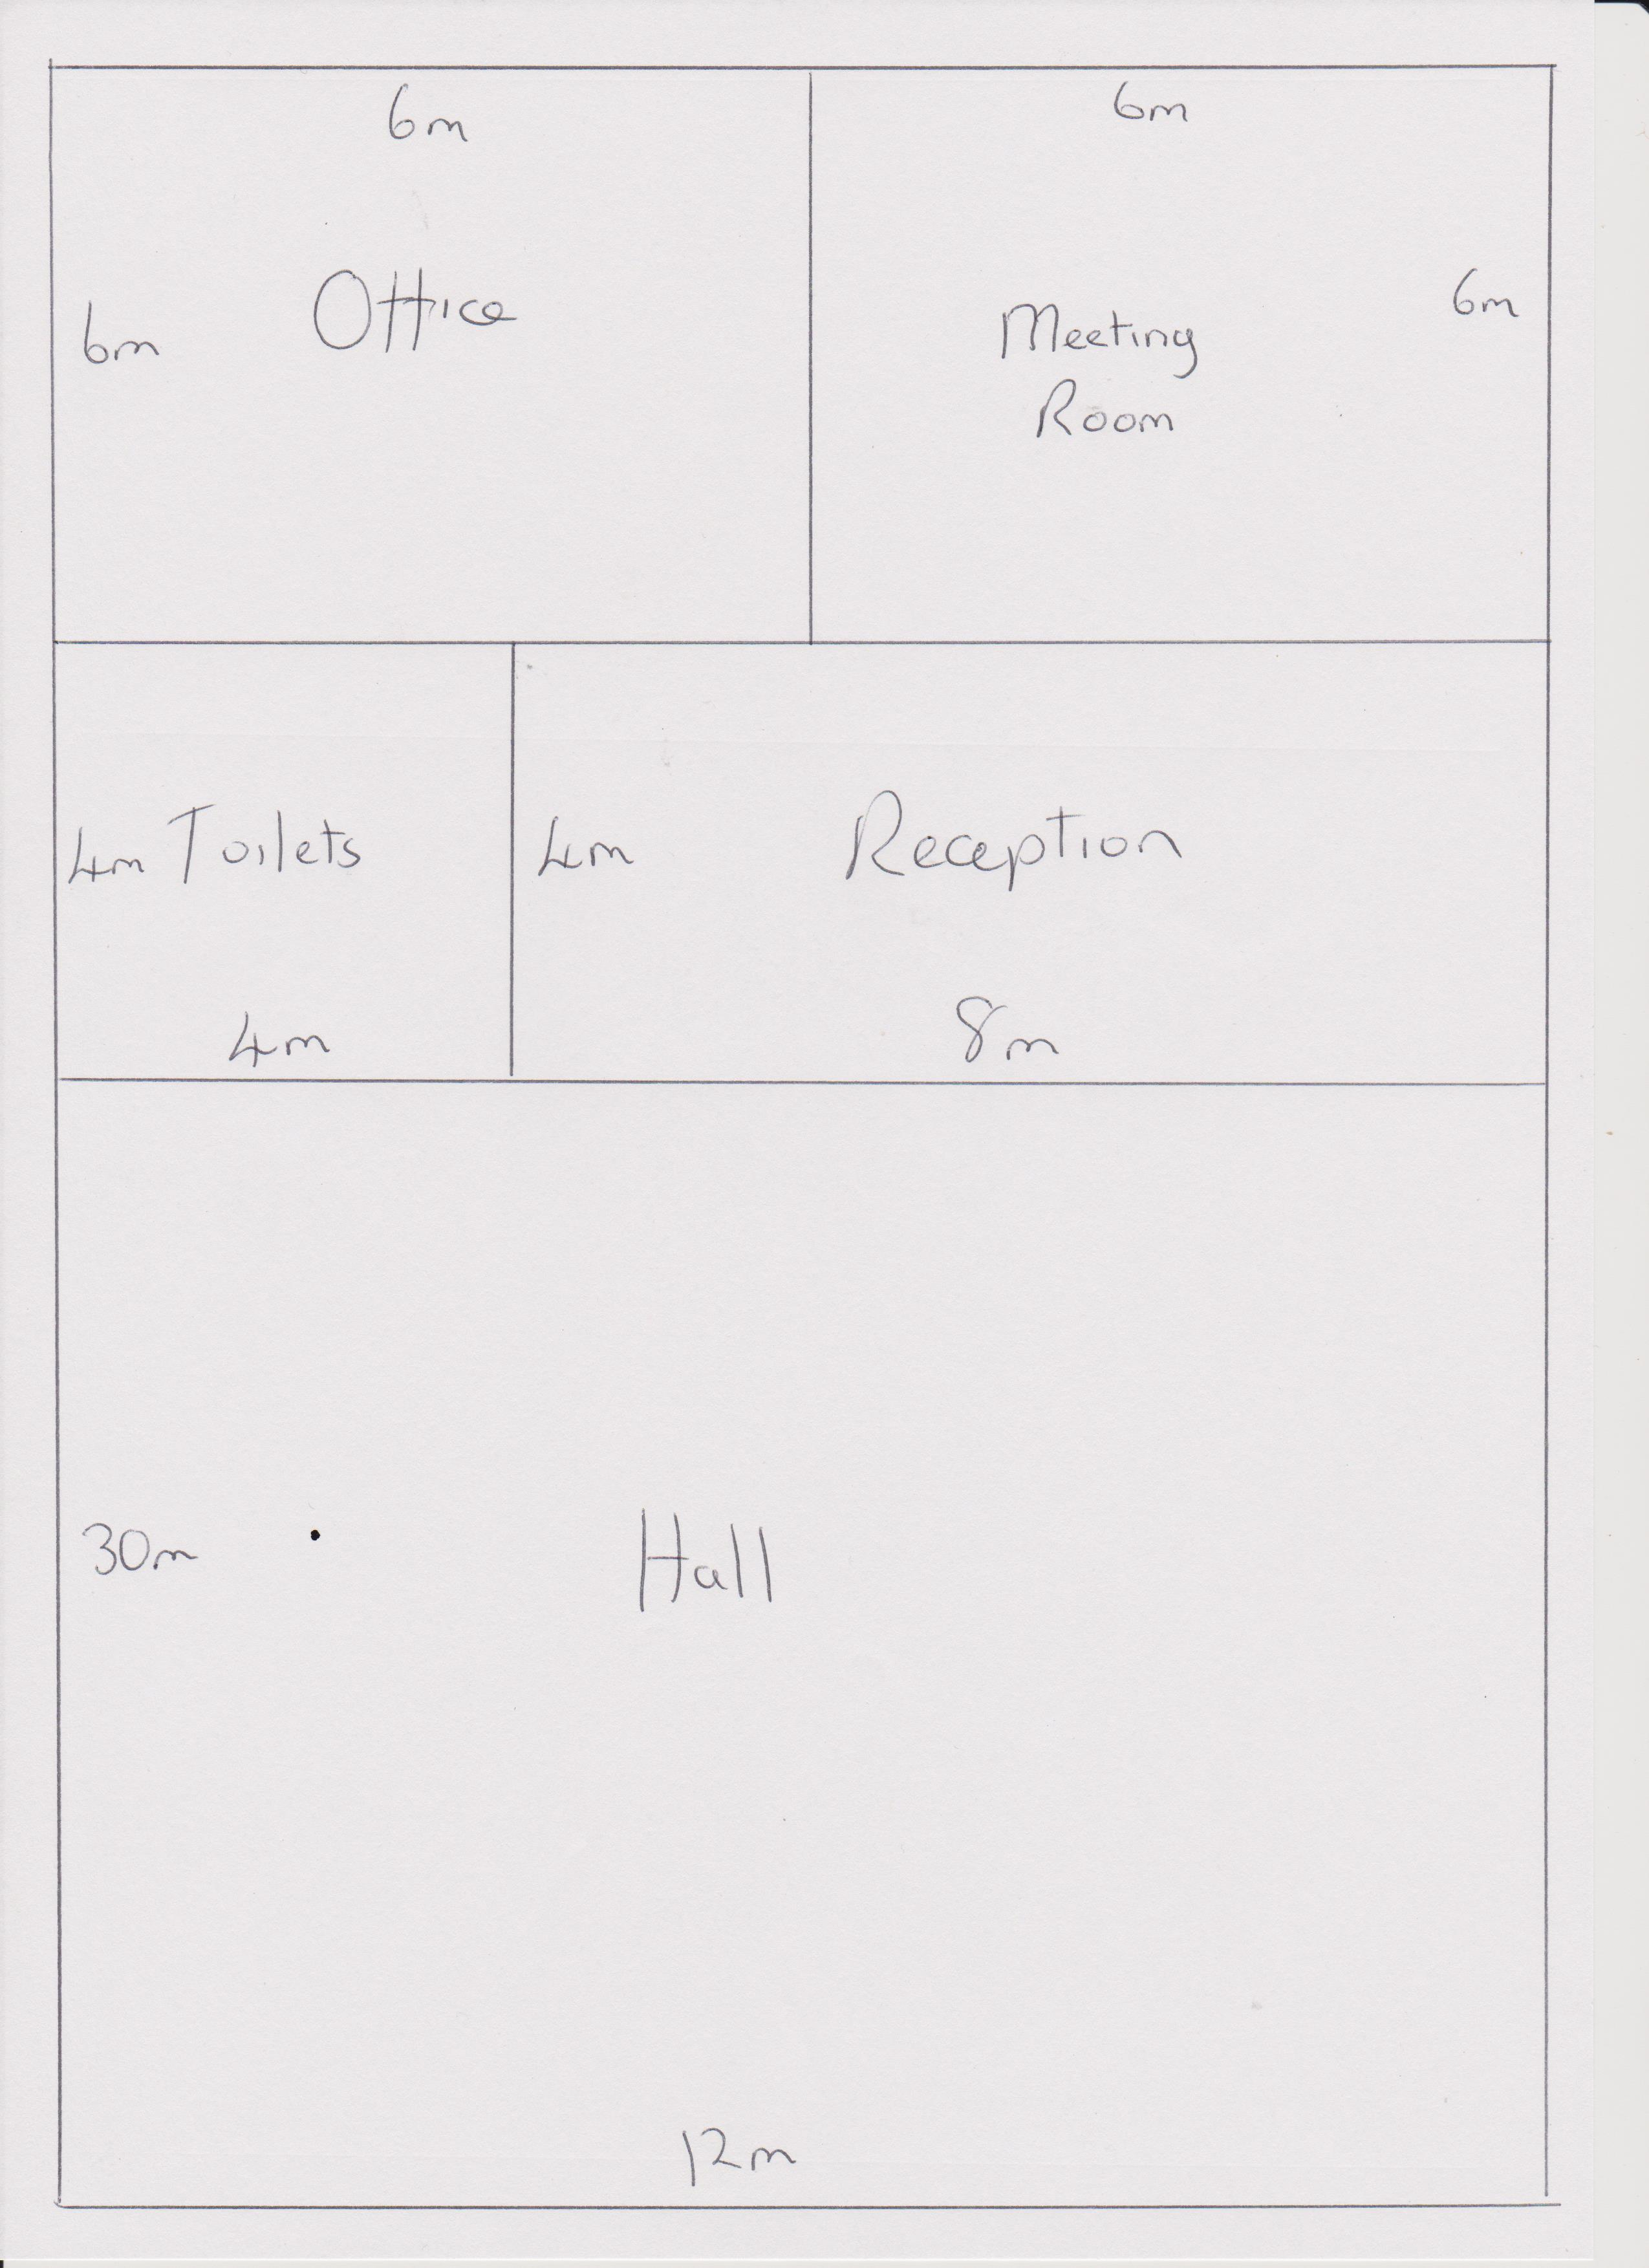 6m
6m
Office
6m
6m
Meeting
Room
4m Toilets
4m
Reception
4m
8m
30m
Hall
12m